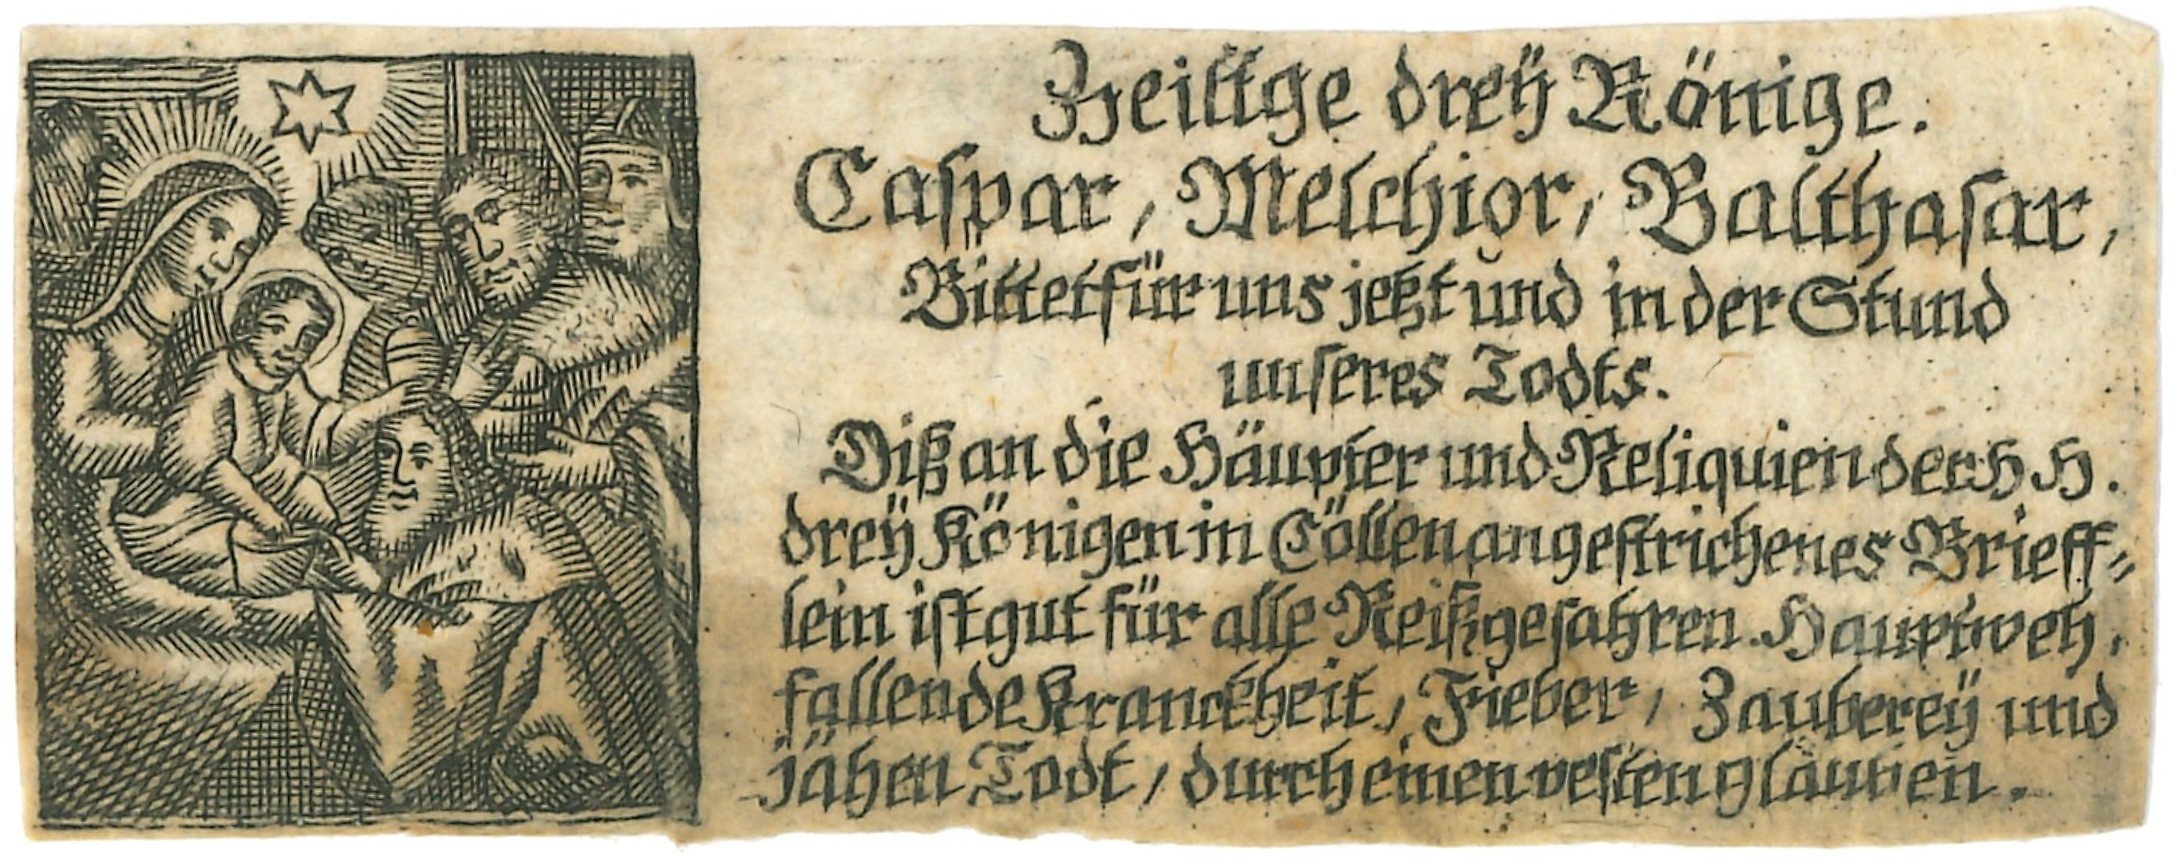 Heilige dreÿ Könige.
Caspar, Melchior, Balthasar,
Bittet für uns jetzt und in der Stund
unseres Todts.
Diß an die Häupter und Reliquien der H H.
dreÿ Königen in Cöllen angestrichenes Brieff=
lein ist gut für alle Reißgefahren. Hauptweh,
fallende Kranckheit, Fieber, Zaubereÿ und
jähen Todt, durch einen vesten glauben.